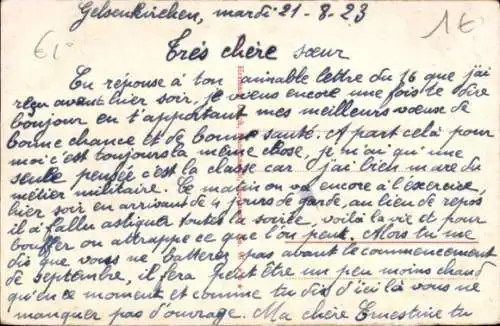 Gelsenkirchen, mardi 21-8-23
1€
€1°
Très chère sœur
En réponse à ton aimable lettre du 16 que j'ai
reçu avant hier soir, je viens encore une fois te dire
bonjour en t'apportant mes meilleurs vœux de
bonne chance et de bonne santé. A part celà pour
moi c'est toujours la même chose, je n'ai qu'une
seule pensée c'est la classe car j'ai bien marre du
métier militaire. Ce matin on va encore à l'exercice,
hier soir en arrivant de 4 jours de garde, au lieu de repos
il a fallu astiquer toutes la soirée, voilà la vie et pour
bouffer on attrappe ce que l'on peut. Alors tu me
dis que vous ne batterez pas avant le commencement
de septembre, il fera peut être un peu moins chaud
qu'en ce moment et comme tu dis d'ici là vous ne
manquer pas d'ouvrage. Ma chère Ernestine tu